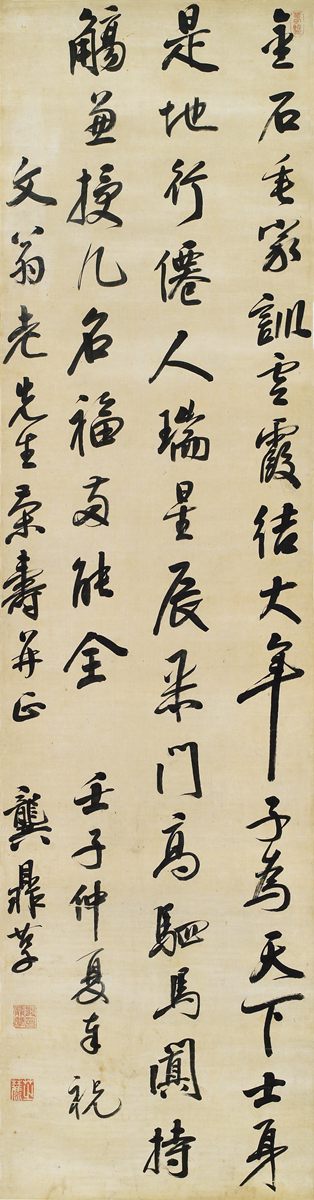 金石垂家訓雲霞結大年子為天下士身
是地行僊人瑞星辰采門高駟馬闐持
觴兼授几名福両能全 壬子仲夏奉祝
文翁老先生榮壽并正 龔鼎孳